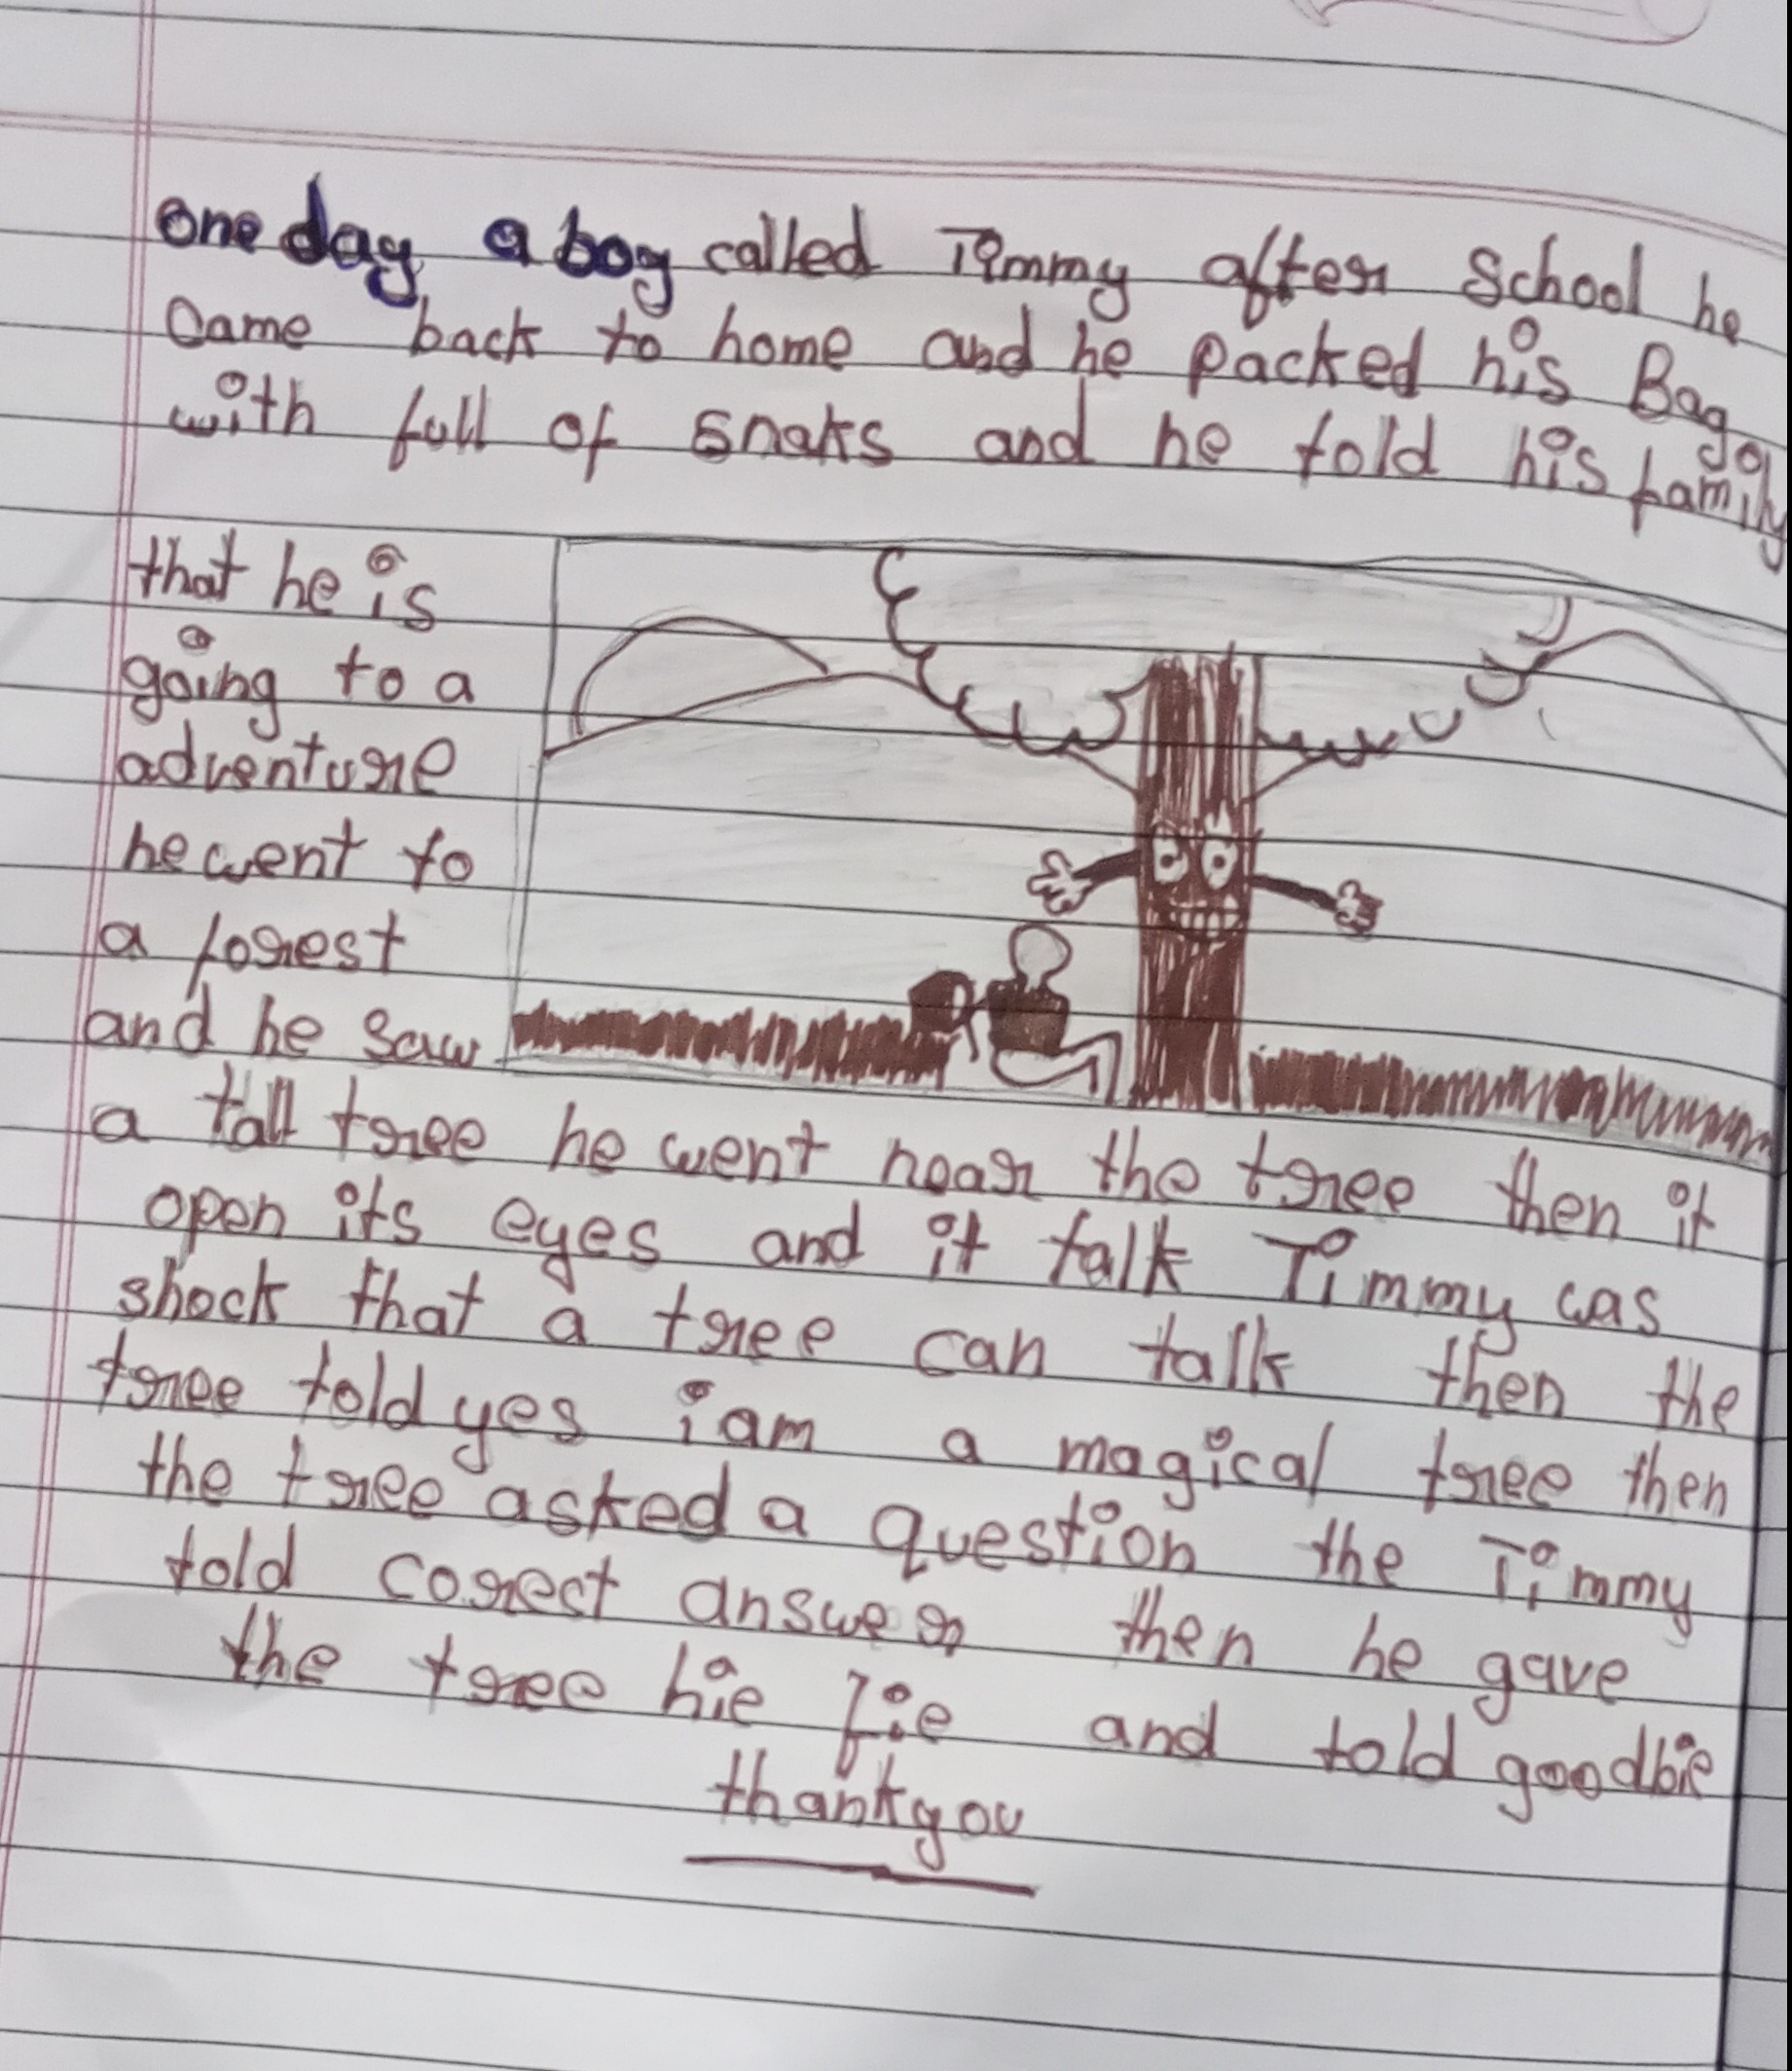 one day a boy called Timmy after School he
Came back to home and he packed his Bag
with full of snaks and he told his family
that he is
going to a
adventure
he went to
a forest
and he saw
a tall tree he went near the tree then it
open its eyes and it talk Timmy was
shock that a tree can talk then the
tree told yes i am a magical tree then
the tree asked a question the Timmy
told corect answer then he gave
the tree hie fie and told goodbie
thankyou